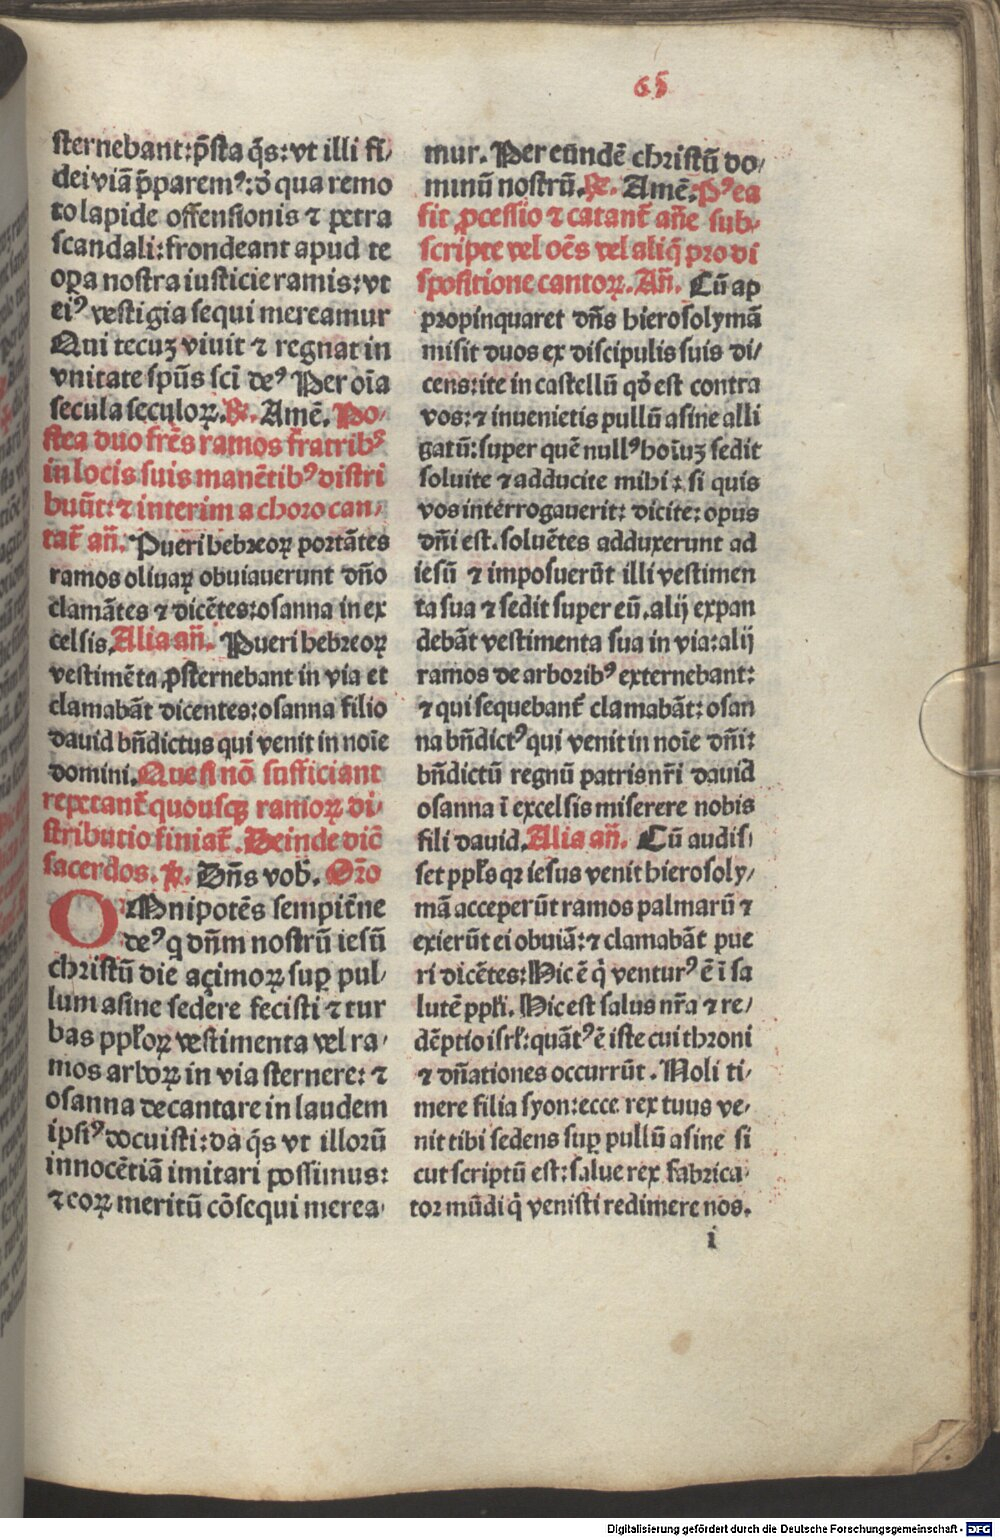 65
sternebant: p̄sta q̄s: vt illi fi/
dei viā p̄paremꝰ: ō qua remo
to lapide offensionis ⁊ petra
scandali: frondeant apud te
oꝑa nostra iusticie ramis: vt
eiꝰ vestigia sequi mereamur
Qui tecuꝫ viuit ⁊ regnat in
vnitate sp̄us sci̅ deꝰ Per oi̅a
secula seculoꝝ. ℞. Amē. Po/
stea duo fr̄es ramos fratribꝰ
in locis suis manētibꝰ distri
buūt: ⁊ interim a choro can/
tat̄ an̄. Pueri hebreoꝝ portātes
ramos oliuaꝝ obuiauerunt dn̄o
clamātes ⁊ dicētes: osanna in ex
celsis. Alia an̄. Pueri hebreoꝝ
vestimēta ꝓsternebant in via et
clamabāt dicentes: osanna filio
dauid bn̄dictus qui venit in noi̅e
domini. Que si nō sufficiant
repetant̄ quousqꝫ ramoꝝ di/
stributio finiat̄. Deinde dic̄
sacerdos. ℣. Dn̄s vob̄. Or̄o
OMnipotēs sempit̄ne
deꝰ q dn̄m nostrū iesū
christū die açimoꝝ suꝑ pul/
lum asine sedere fecisti ⁊ tur
bas ppl̄oꝝ vestimenta vel ra/
mos arboꝝ in via sternere: ⁊
osanna decantare in laudem
ipsiꝰ docuisti: da q̄s vt illorū
innocētiā imitari possimus:
⁊ eoꝝ meritū cōsequi merea/
mur. Per eūndē christū do/
minū nostrū. ℞. Amē. Pꝰea
fit ꝓcessio ⁊ catant̄ an̄e sub/
scripte vel oēs vel aliq̄ pro di
spositione cantoꝝ. An̄. Cū ap
propinquaret dn̄s hierosolymā
misit duos ex discipulis suis di/
cens: ite in castellū qd̄ est contra
vos: ⁊ inuenietis pullū asine alli
gatū: super quē nullꝰ hoi̅uꝫ sedit
soluite ⁊ adducite mihi: si quis
vos interrogauerit: dicite: opus
dn̄i est. soluētes adduxerunt ad
iesū ⁊ imposuerūt illi vestimen
ta sua ⁊ sedit super eū. alij expan
debāt vestimenta sua in via: alij
ramos de arboribꝰ externebant:
⁊ qui sequebant̄ clamabāt: osan
na bn̄dictꝰ qui venit in noi̅e dn̄i:
bn̄dictū regnū patris nr̄i dauid
osanna i̅ excelsis miserere nobis
fili dauid. Alia an̄. Cū audis/
set ppl̄s qꝛ iesus venit hierosoly/
mā acceperūt ramos palmarū ⁊
exierūt ei obuiā: ⁊ clamabāt pue
ri dicētes: Hic ē q̇ venturꝰ ē i̅ sa
lutē ppl̄i. Hic est salus nr̄a ⁊ re/
dēptio isrl̄: quātꝰ ē iste cui throni
⁊ dn̄ationes occurrūt. Noli ti/
mere filia syon: ecce rex tuus ve/
nit tibi sedens suꝑ pullū asine si
cut scriptū est: salue rex fabrica/
tor mūdi q̇ venisti redimere nos.
i
Digitalisierung gefördert durch die Deutsche Forschungsgemeinschaft - DFG